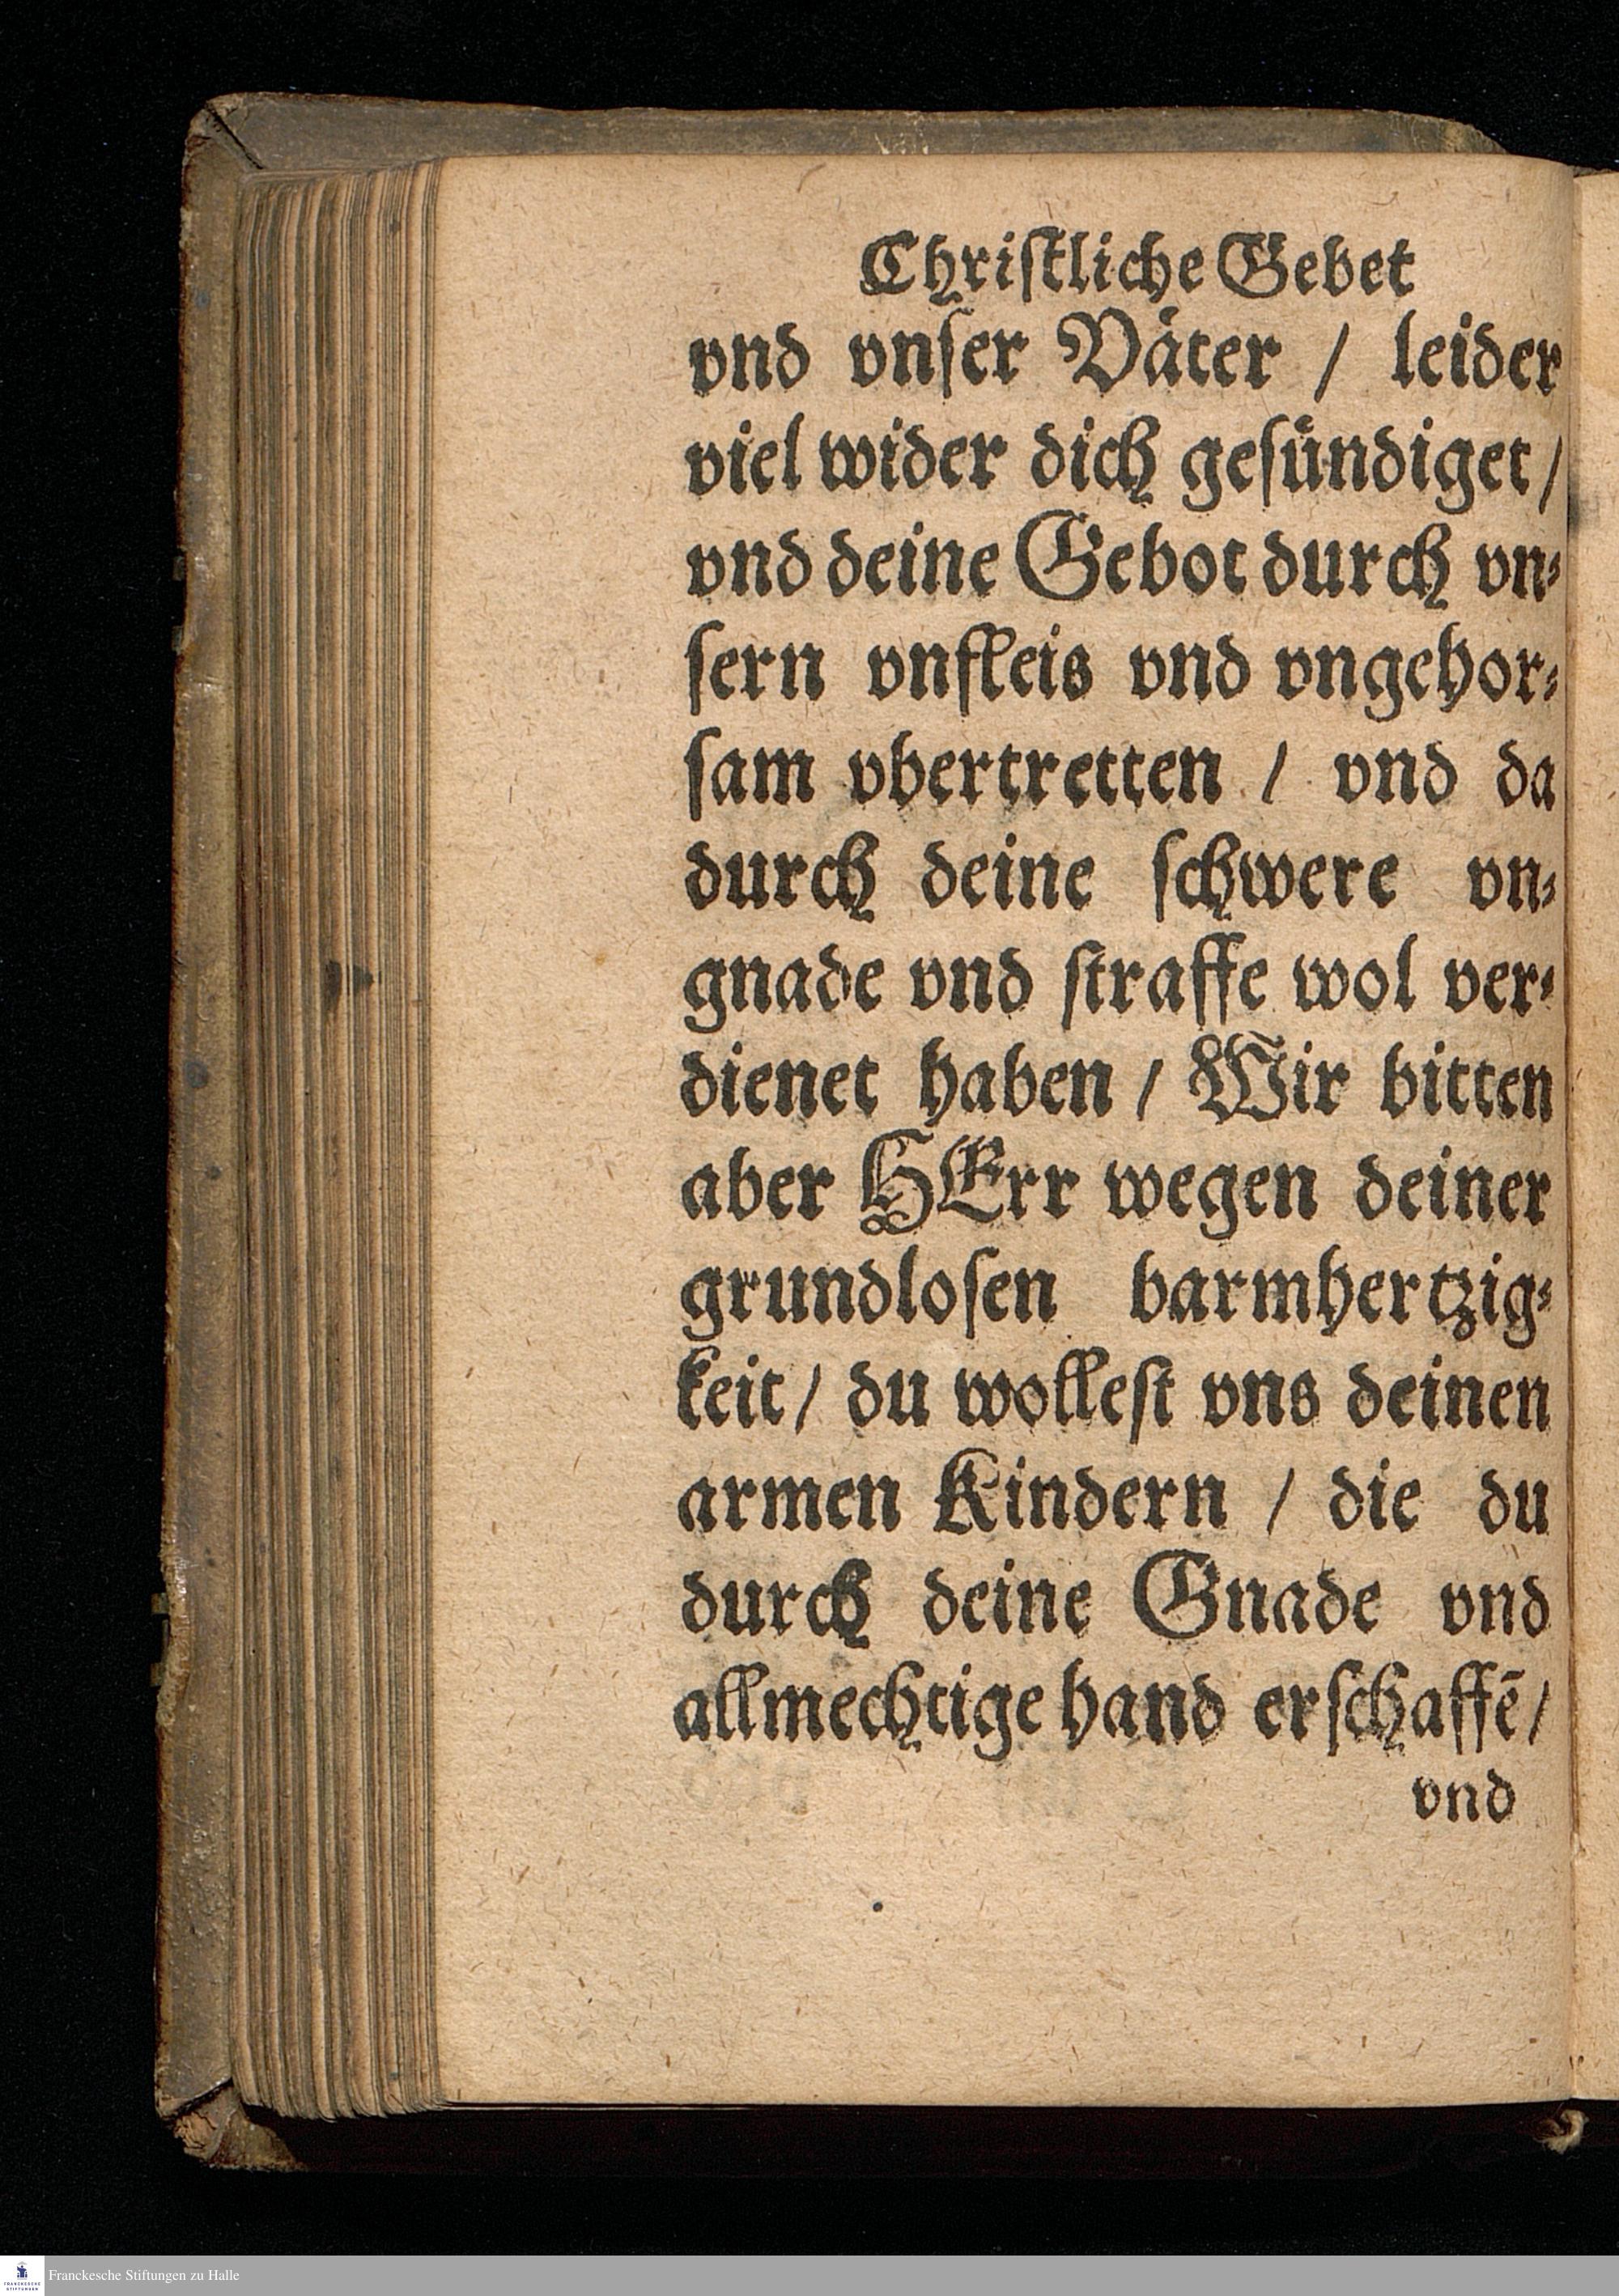 Christliche Gebet
vnd vnser Väter / leider
viel wider dich gesündiget /
vnd deine Gebot durch vn-
sern vnfleis vnd vngehor-
sam vbertretten / vnd da
durch deine schwere vn-
gnade vnd straffe wol ver-
dienet haben / Wir bitten
aber HErr wegen deiner
grundlosen barmhertzig-
keit / du wollest vns deinen
armen Kindern / die du
durch deine Gnade vnd
allmechtige hand erschaffē /
vnd
Franckesche Stiftungen zu Halle
FRANCKESCHE
STIFTUNGEN